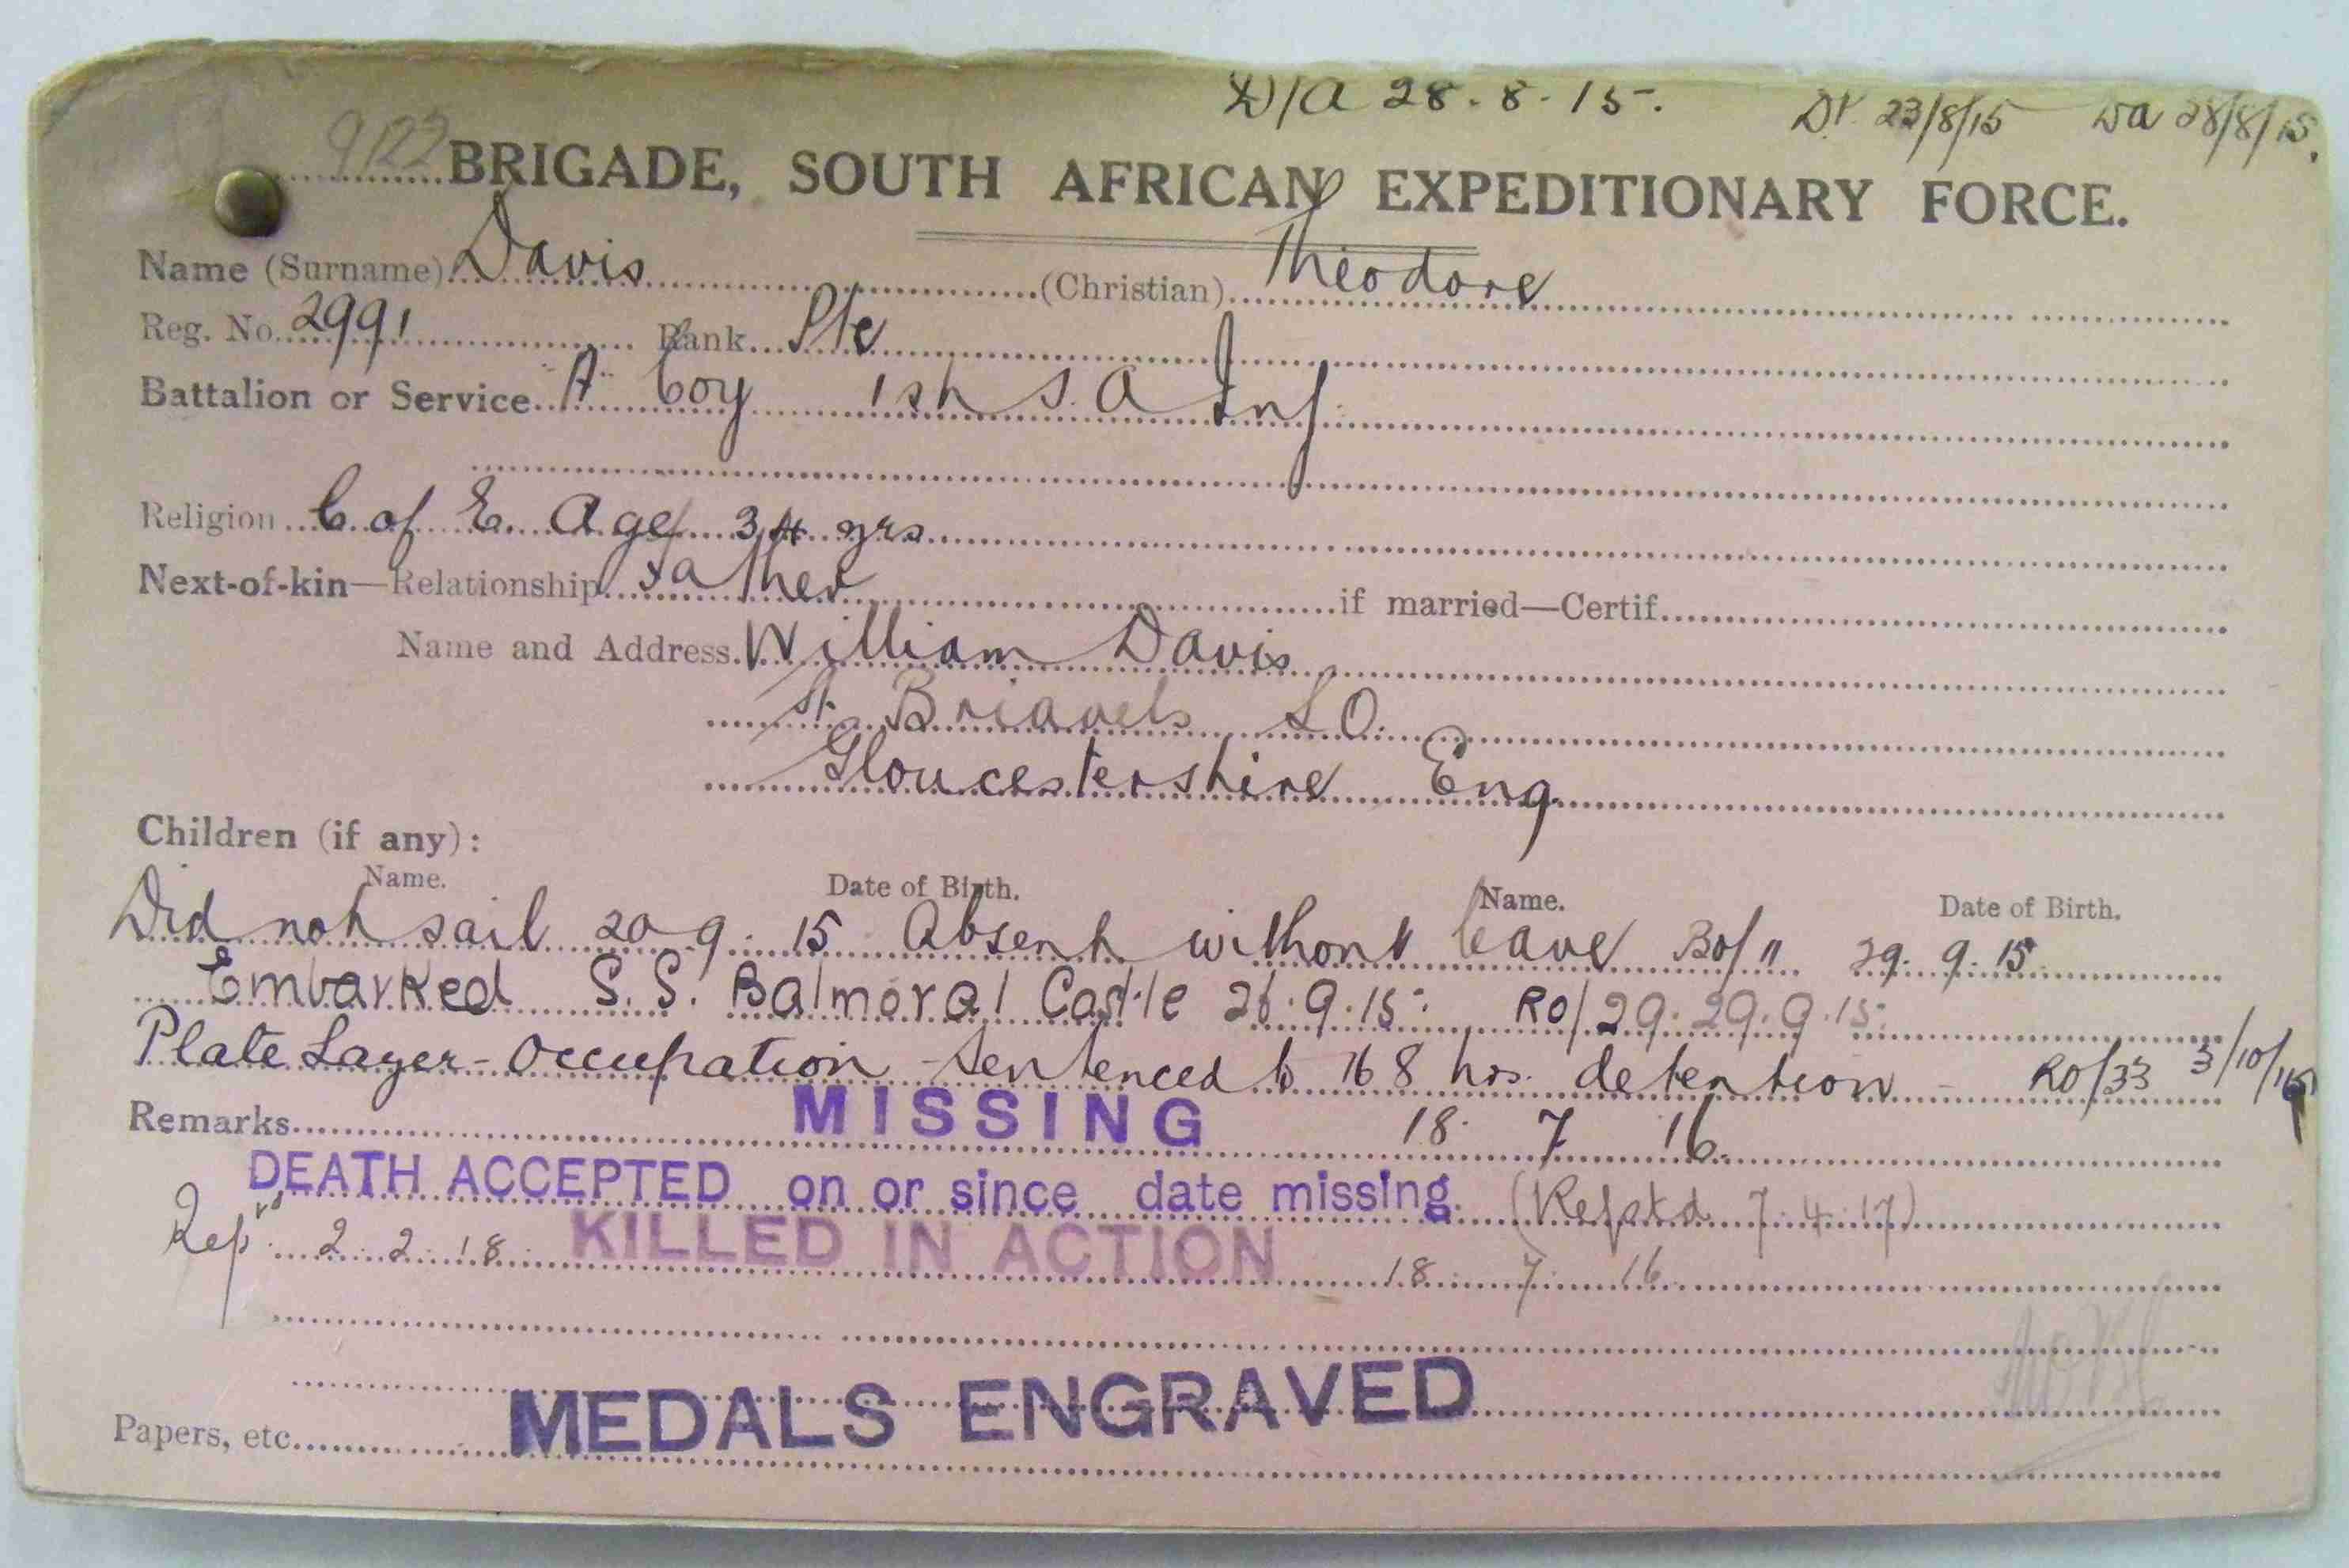 D/A 28.8.15. Dt 23/8/15 Da 28/8/15.
9122 BRIGADE, SOUTH AFRICAN EXPEDITIONARY FORCE.
Name (Surname) Davis (Christian) Theodore
Reg. No. 2991 Rank Pte
Battalion or Service "A" Coy 1st S.A Inf
Religion C of E. Age 34 yrs
Next-of-kin—Relationship Father if married—Certif.
Name and Address. William Davis
St. Briavels S.O.
Gloucestershire Eng.
Children (if any):
Name. Date of Birth. Name. Date of Birth.
Did not sail 20 9. 15 Absent without leave Bo/11 29. 9. 15
Embarked S.S. Balmoral Castle 26.9.15. RO/29. 29.9.15.
Plate Layer - Occupation - Sentenced to 168 hrs. detention - RO/33 3/10/15
Remarks MISSING 18. 7 16.
DEATH ACCEPTED on or since date missing. (Repstd 7.4.17)
Repd. 2.2.18. KILLED IN ACTION 18 7 16
MEDALS ENGRAVED
Papers, etc.